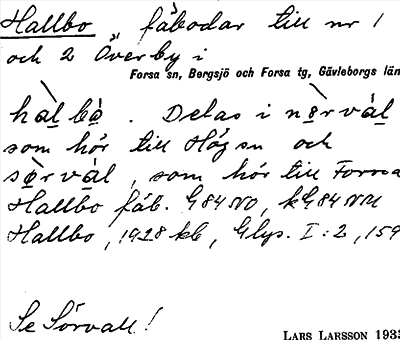 Hallbo fäbodar till nr 1
och 2 Överby i
Forsa sn, Bergsjö och Forsa tg, Gävleborgs län
hàlbò. Delas i nèrvál
som hör till Hög sn och
sèrvál, som hör till Forsa
Hallbo fäb. G84NO, kG84NM
Hallbo, 1928 kb, Glys. I:2, 159
Se Sörvall!
LARS LARSSON 1933